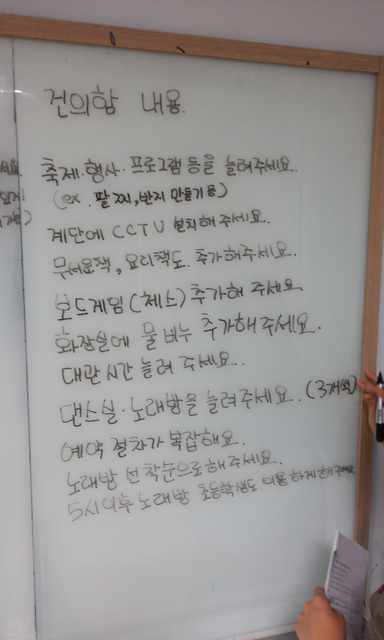 건의함 내용.
축제·행사·프로그램 등을 늘려주세요.
(ex. 팔찌, 반지 만들기 등)
계단에 CCTV 설치해 주세요.
무서운책, 요리책도 추가해주세요.
보드게임 (체스) 추가해 주세요
화장실에 물비누 추가해주세요.
대관 시간 늘려 주세요.
댄스실·노래방을 늘려주세요. (3개씩)
예약 절차가 복잡해요.
노래방 선착순으로 해주세요.
5시이후 노래방 초등학생도 이용 하게 해 주세요